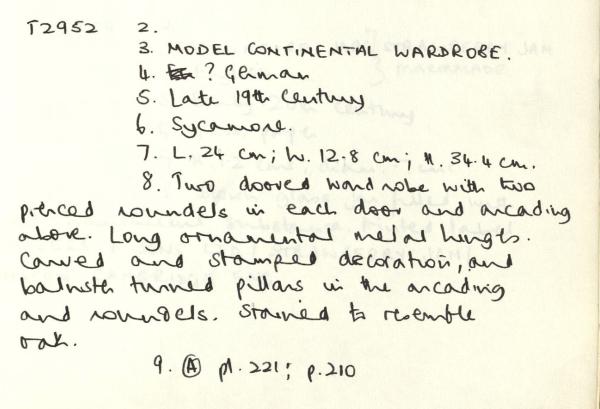 T2952 2.
3. MODEL CONTINENTAL WARDROBE.
4. ? German
5. Late 19th Century
6. Sycamore.
7. L. 24 cm; W. 12.8 cm; H. 34.4 cm.
8. Two doored wardrobe with two
pierced roundels in each door and arcading
above. Long ornamental metal hinges.
Carved and stamped decoration, and
turned pillars in the arcading
and roundels. Stained to resemble
oak.
9. Ⓐ pl. 221; p. 210